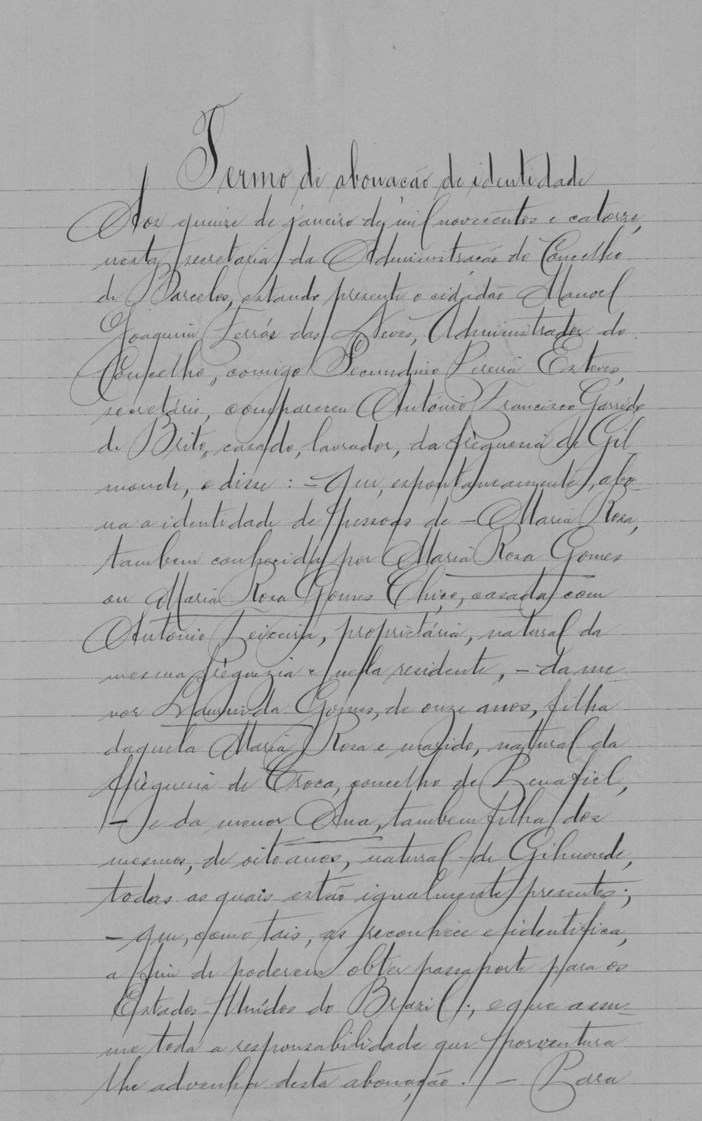 Termo de abonação de identidade
Aos quinze de janeiro de mil novecentos e catorze,
nesta secretaria da Administração do Concelho
de Barcelos, estando presente o cidadão Manoel
Joaquim Ferrás das Neves, Administrador do
Concelho, comigo Secundino Pereira Esteves,
secretário, compareceu António Francisco Garrido
de Brito, casado, lavrador, da freguesia de Gil
monde, e disse: — Que, espontaneamente, abo-
na a identidade de pessoas de — Maria Rosa,
tambem conhecida por Maria Rosa Gomes
ou Maria Rosa Gomes Chiço, casada com
António Teixeira, proprietária, natural da
mesma freguezia e nella residente, — da me
nor Laurinda Gomes, de onze anos, filha
daquela Maria Rosa e marido, natural da
freguesia de Croca, concelho de Penafiel,
— e da menor Ana, tambem filha dos
mesmos, de oito anos, natural de Gilmonde,
todas as quais estão igualmente presentes;
— que, como tais, as reconhece e identifica,
a fim de poderem obter passaporte para os
Estados-Unidos do Brazil; e que assu-
me toda a responsabilidade que porventura
lhe advenha desta abonação. — Para